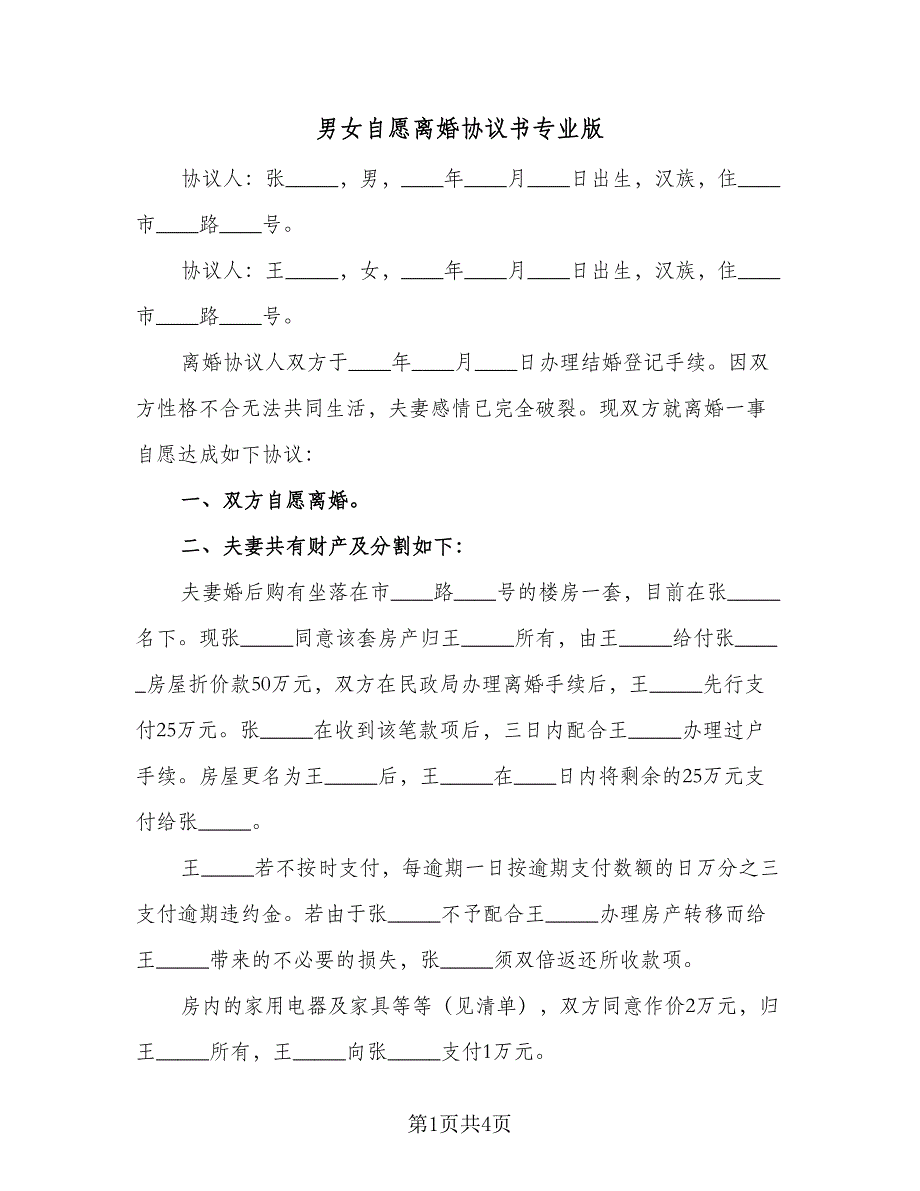 男女自愿离婚协议书专业版
协议人：张_____，男，____年____月____日出生，汉族，住____
市____路____号。
协议人：王_____，女，____年____月____日出生，汉族，住____
市____路____号。
离婚协议人双方于____年____月____日办理结婚登记手续。因双
方性格不合无法共同生活，夫妻感情已完全破裂。现双方就离婚一事
自愿达成如下协议：
一、双方自愿离婚。
二、夫妻共有财产及分割如下：
夫妻婚后购有坐落在市____路____号的楼房一套，目前在张_____
名下。现张_____同意该套房产归王_____所有，由王_____给付张____
_房屋折价款50万元，双方在民政局办理离婚手续后，王_____先行支
付25万元。张_____在收到该笔款项后，三日内配合王_____办理过户
手续。房屋更名为王_____后，王_____在____日内将剩余的25万元支
付给张_____。
王_____若不按时支付，每逾期一日按逾期支付数额的日万分之三
支付逾期违约金。若由于张_____不予配合王_____办理房产转移而给
王_____带来的不必要的损失，张_____须双倍返还所收款项。
房内的家用电器及家具等等（见清单），双方同意作价2万元，归
王_____所有，王_____向张_____支付1万元。
第1页共4页